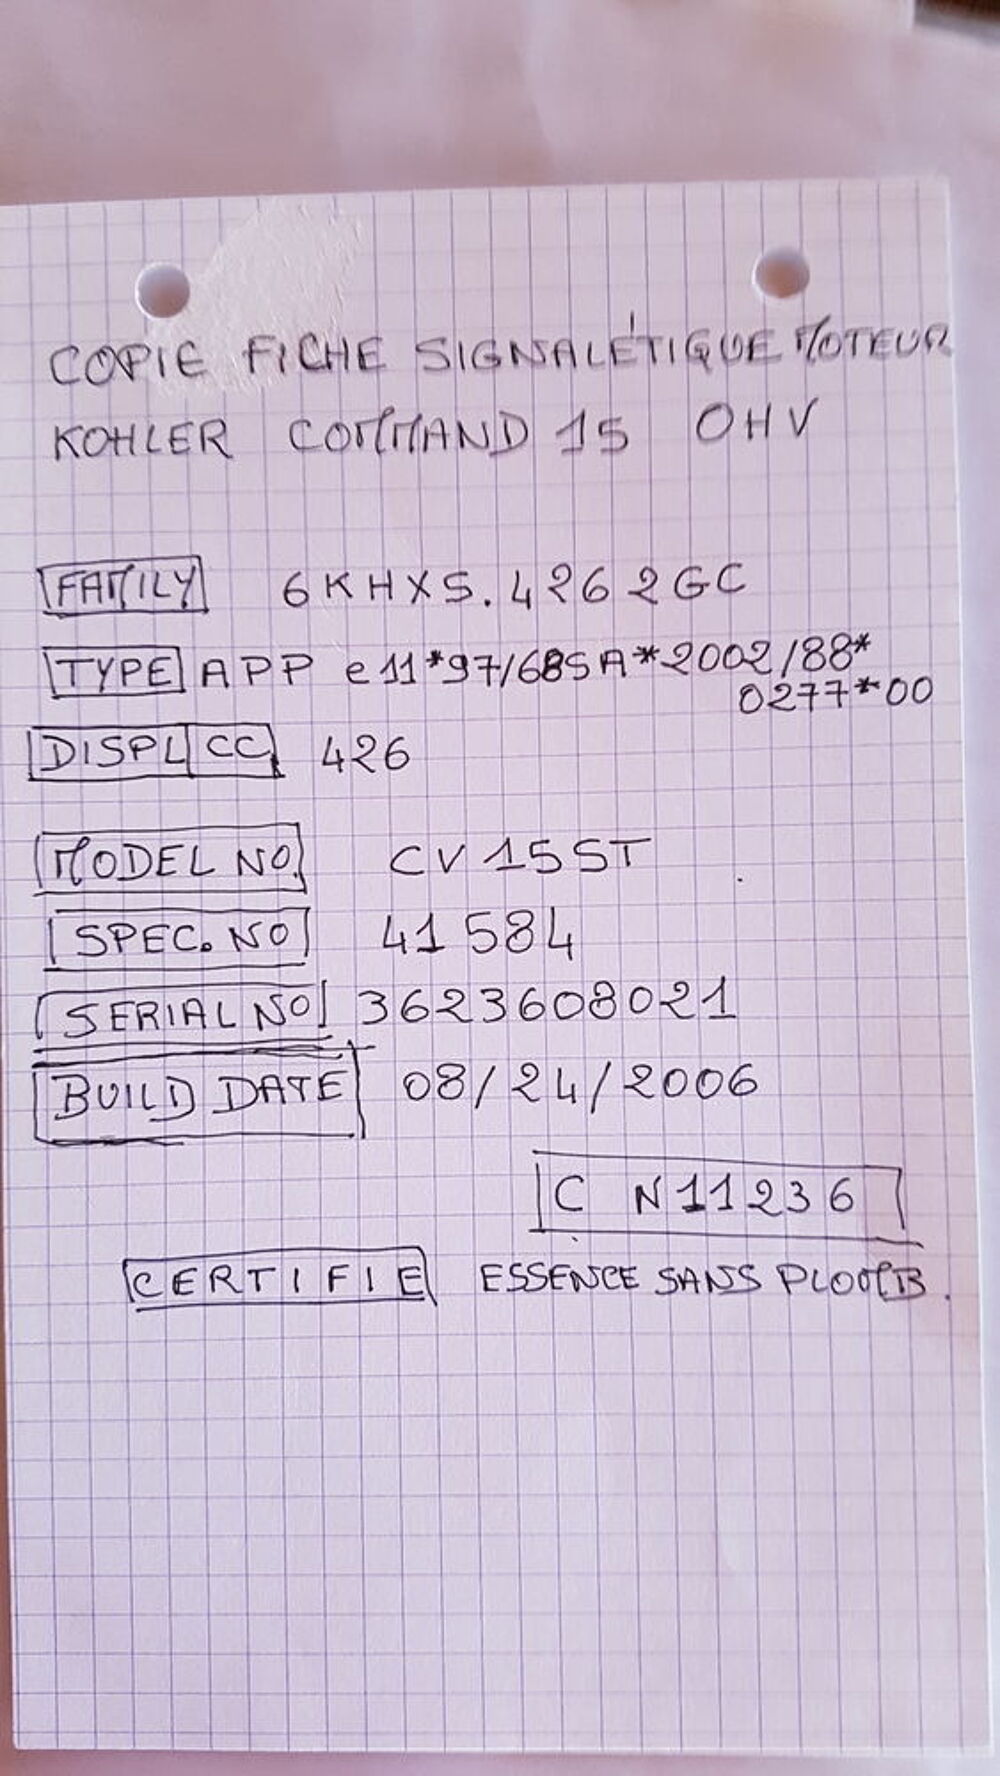 COPIE FICHE SIGNALÉTIQUE MOTEUR
KOHLER COMMAND 15 OHV
FAMILY 6KHXS.4262GC
TYPE APP e11*97/68SA*2002/88*
0277*00
DISPL CC 426
MODEL NO. CV15ST
SPEC. NO 41584
SERIAL NO 3623608021
BUILD DATE 08/24/2006
C N11236
CERTIFIE ESSENCE SANS PLOMB.